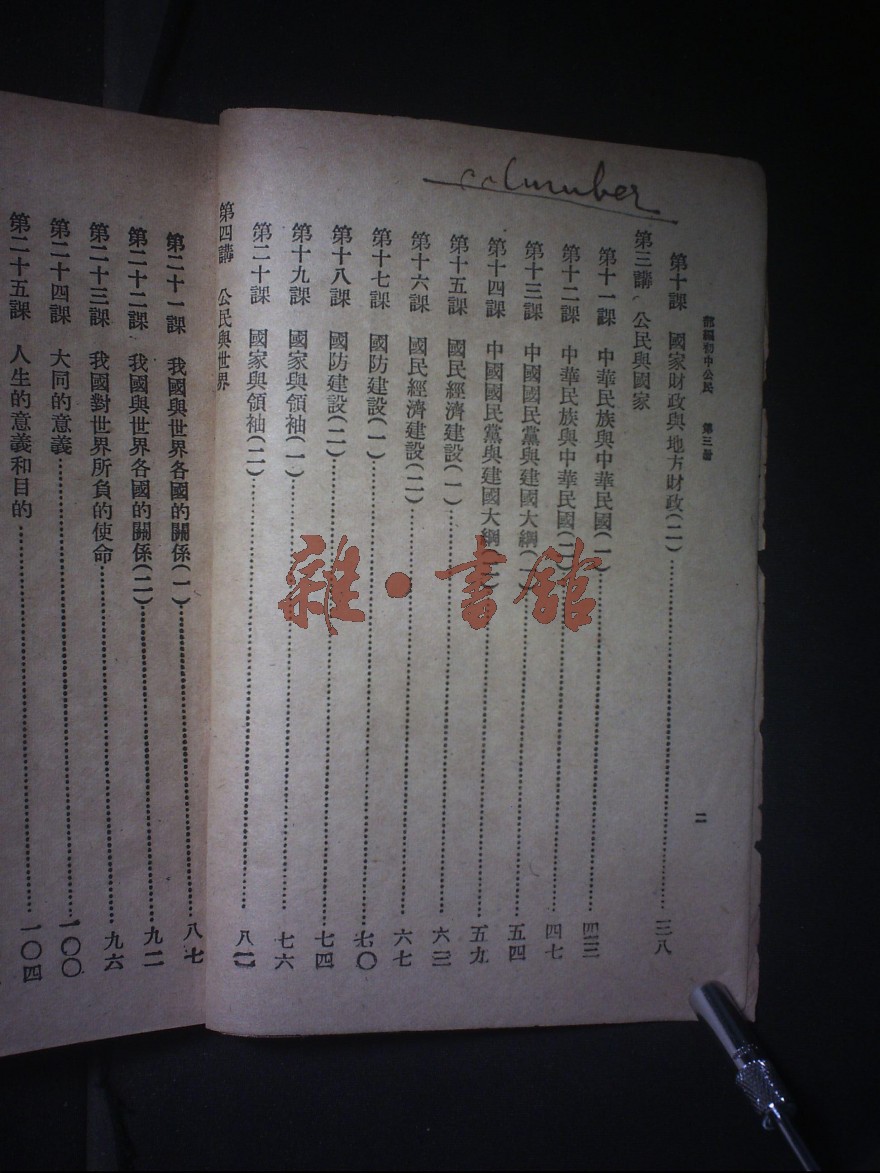 部編初中公民　第三册
二
第十課　國家財政與地方財政(二)……三八
第三講　公民與國家
第十一課　中華民族與中華民國(一)……四三
第十二課　中華民族與中華民國(二)……四七
第十三課　中國國民黨與建國大綱(一)……五四
第十四課　中國國民黨與建國大綱(二)……五九
第十五課　國民經濟建設(一)……六三
第十六課　國民經濟建設(二)……六七
第十七課　國防建設(一)……七〇
第十八課　國防建設(二)……七四
第十九課　國家與領袖(一)……七六
第二十課　國家與領袖(二)……八二
第四講　公民與世界
第二十一課　我國與世界各國的關係(一)……八七
第二十二課　我國與世界各國的關係(二)……九二
第二十三課　我國對世界所負的使命……九六
第二十四課　大同的意義……一〇〇
第二十五課　人生的意義和目的……一〇四
雜·書館